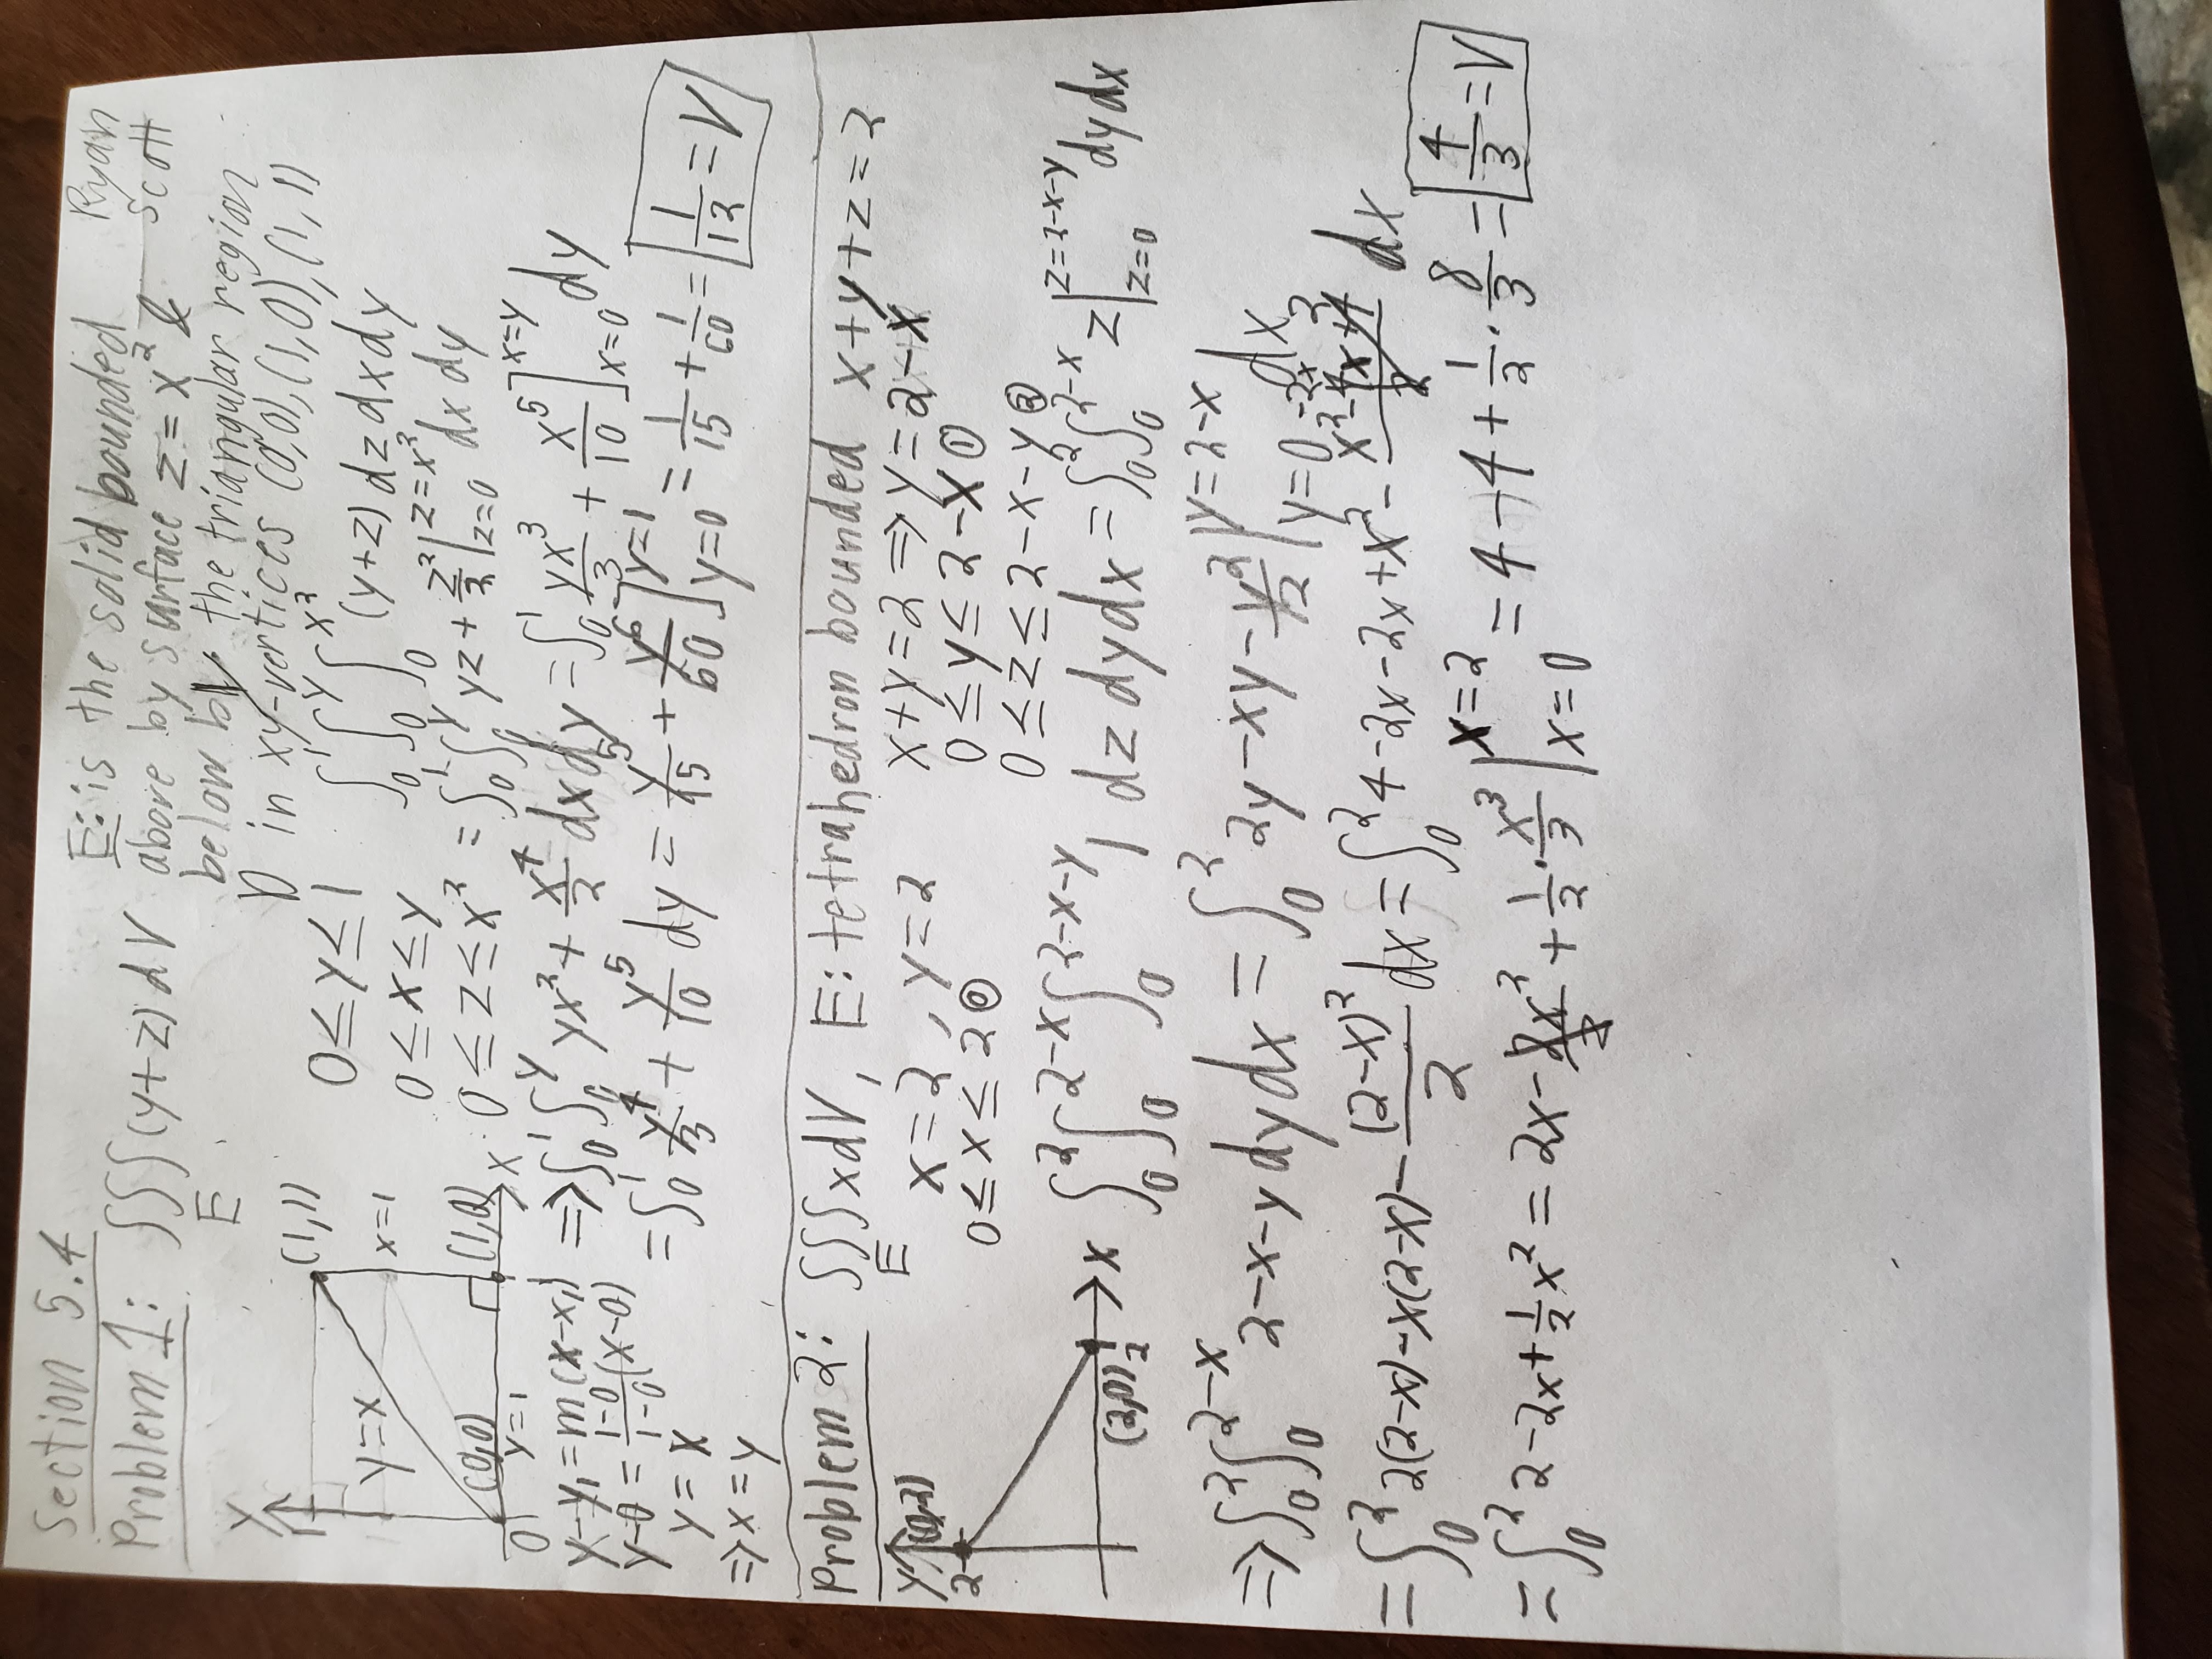 Section 5.4
Ryan Scott
Problem 1: ∫∫∫(y+z) dV
E
E: is the solid bounded
above by surface z = x² &
below by the triangular region
D in xy-vertices (0,0), (1,0), (1,1)
y
1
(1,1)
y=x
x=1
(0,0)
(1,0)
x
0
y=1
1
0≤y≤1
0≤x≤y
0≤z≤x²
∫₀¹∫₀^y∫₀^x² (y+z) dz dx dy
= ∫₀¹∫₀^y yz + z²/2 |_{z=0}^{z=x²} dx dy
y-y₁=m(x-x₁)
y-0 = (1-0)/(1-0) (x-0)
y = x
⇒ x = y
⇒ ∫₀¹∫₀^y yx² + x⁴/2 dx dy = ∫₀¹ yx³/3 + x⁵/10 ]_{x=0}^{x=y} dy
= ∫₀¹ y⁴/3 + y⁵/10 dy = y⁵/15 + y⁶/60 ]_{y=0}^{y=1} = 1/15 + 1/60 = 1/12 = V
Problem 2: ∫∫∫xdV, E: tetrahedron bounded x+y+z=2
E
y
(0,2)
2
(2,0)
2
x
x=2, y=2
0≤x≤2 ⓪
x+y=2 ⇒ y=2-x
0≤y≤2-x ①
0≤z≤2-x-y ②
∫₀²∫₀^{2-x}∫₀^{2-x-y} 1 dz dy dx = ∫₀²∫₀^{2-x} z |_{z=0}^{z=2-x-y} dy dx
⇒ ∫₀²∫₀^{2-x} 2-x-y dy dx = ∫₀² 2y-xy-y²/2 |_{y=0}^{y=2-x} dx
-2x 2
= ∫₀² 2(2-x)-x(2-x)-(2-x)²/2 dx = ∫₀² 4-2x-2x+x²-(x²-4x+4)/2 dx
= ∫₀² 2-2x+1/2 x² = 2x-2x²/2 + 1/2·x³/3 |_{x=0}^{x=2} = 4-4+1/2·8/3 = 4/3 = V